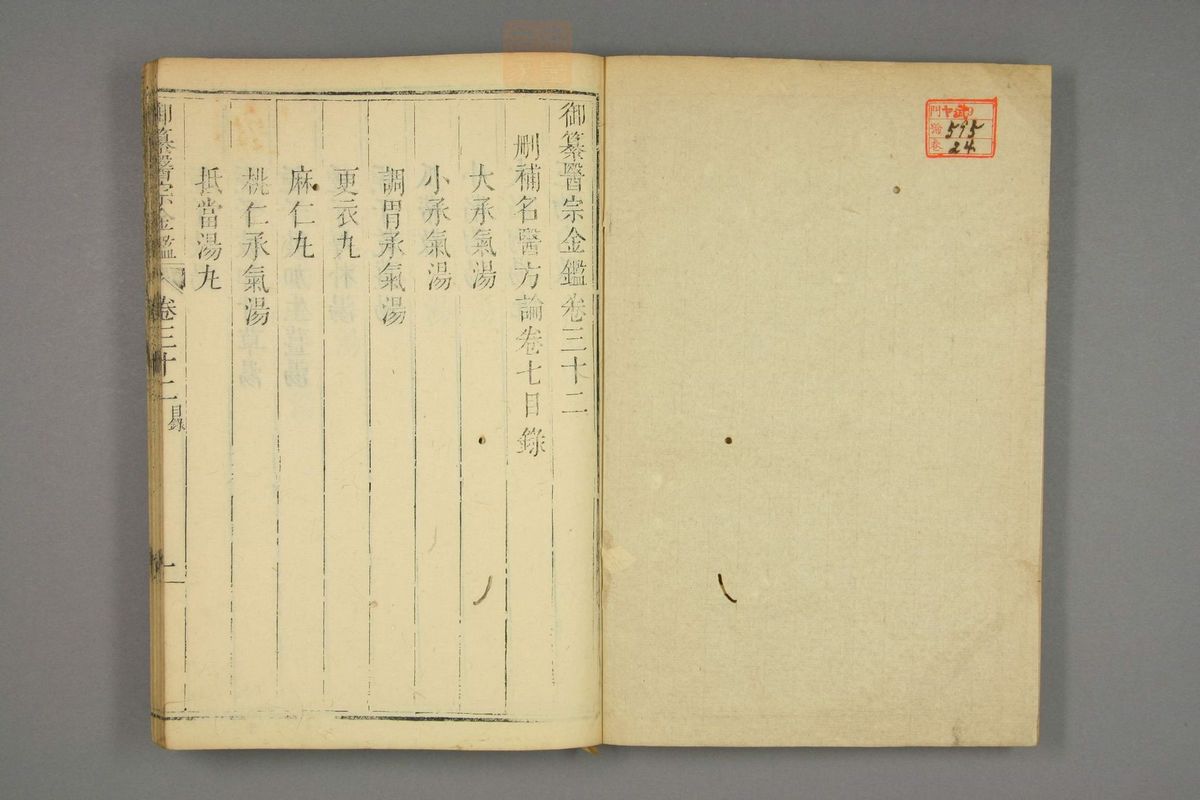 御纂醫宗金鑑卷三十二
刪補名醫方論卷七目錄
大承氣湯
小承氣湯
調胃承氣湯
更衣丸
麻仁丸
桃仁承氣湯
抵當湯丸
御纂醫宗金鑑 卷三十二 目錄 一
門
號 595
卷 24